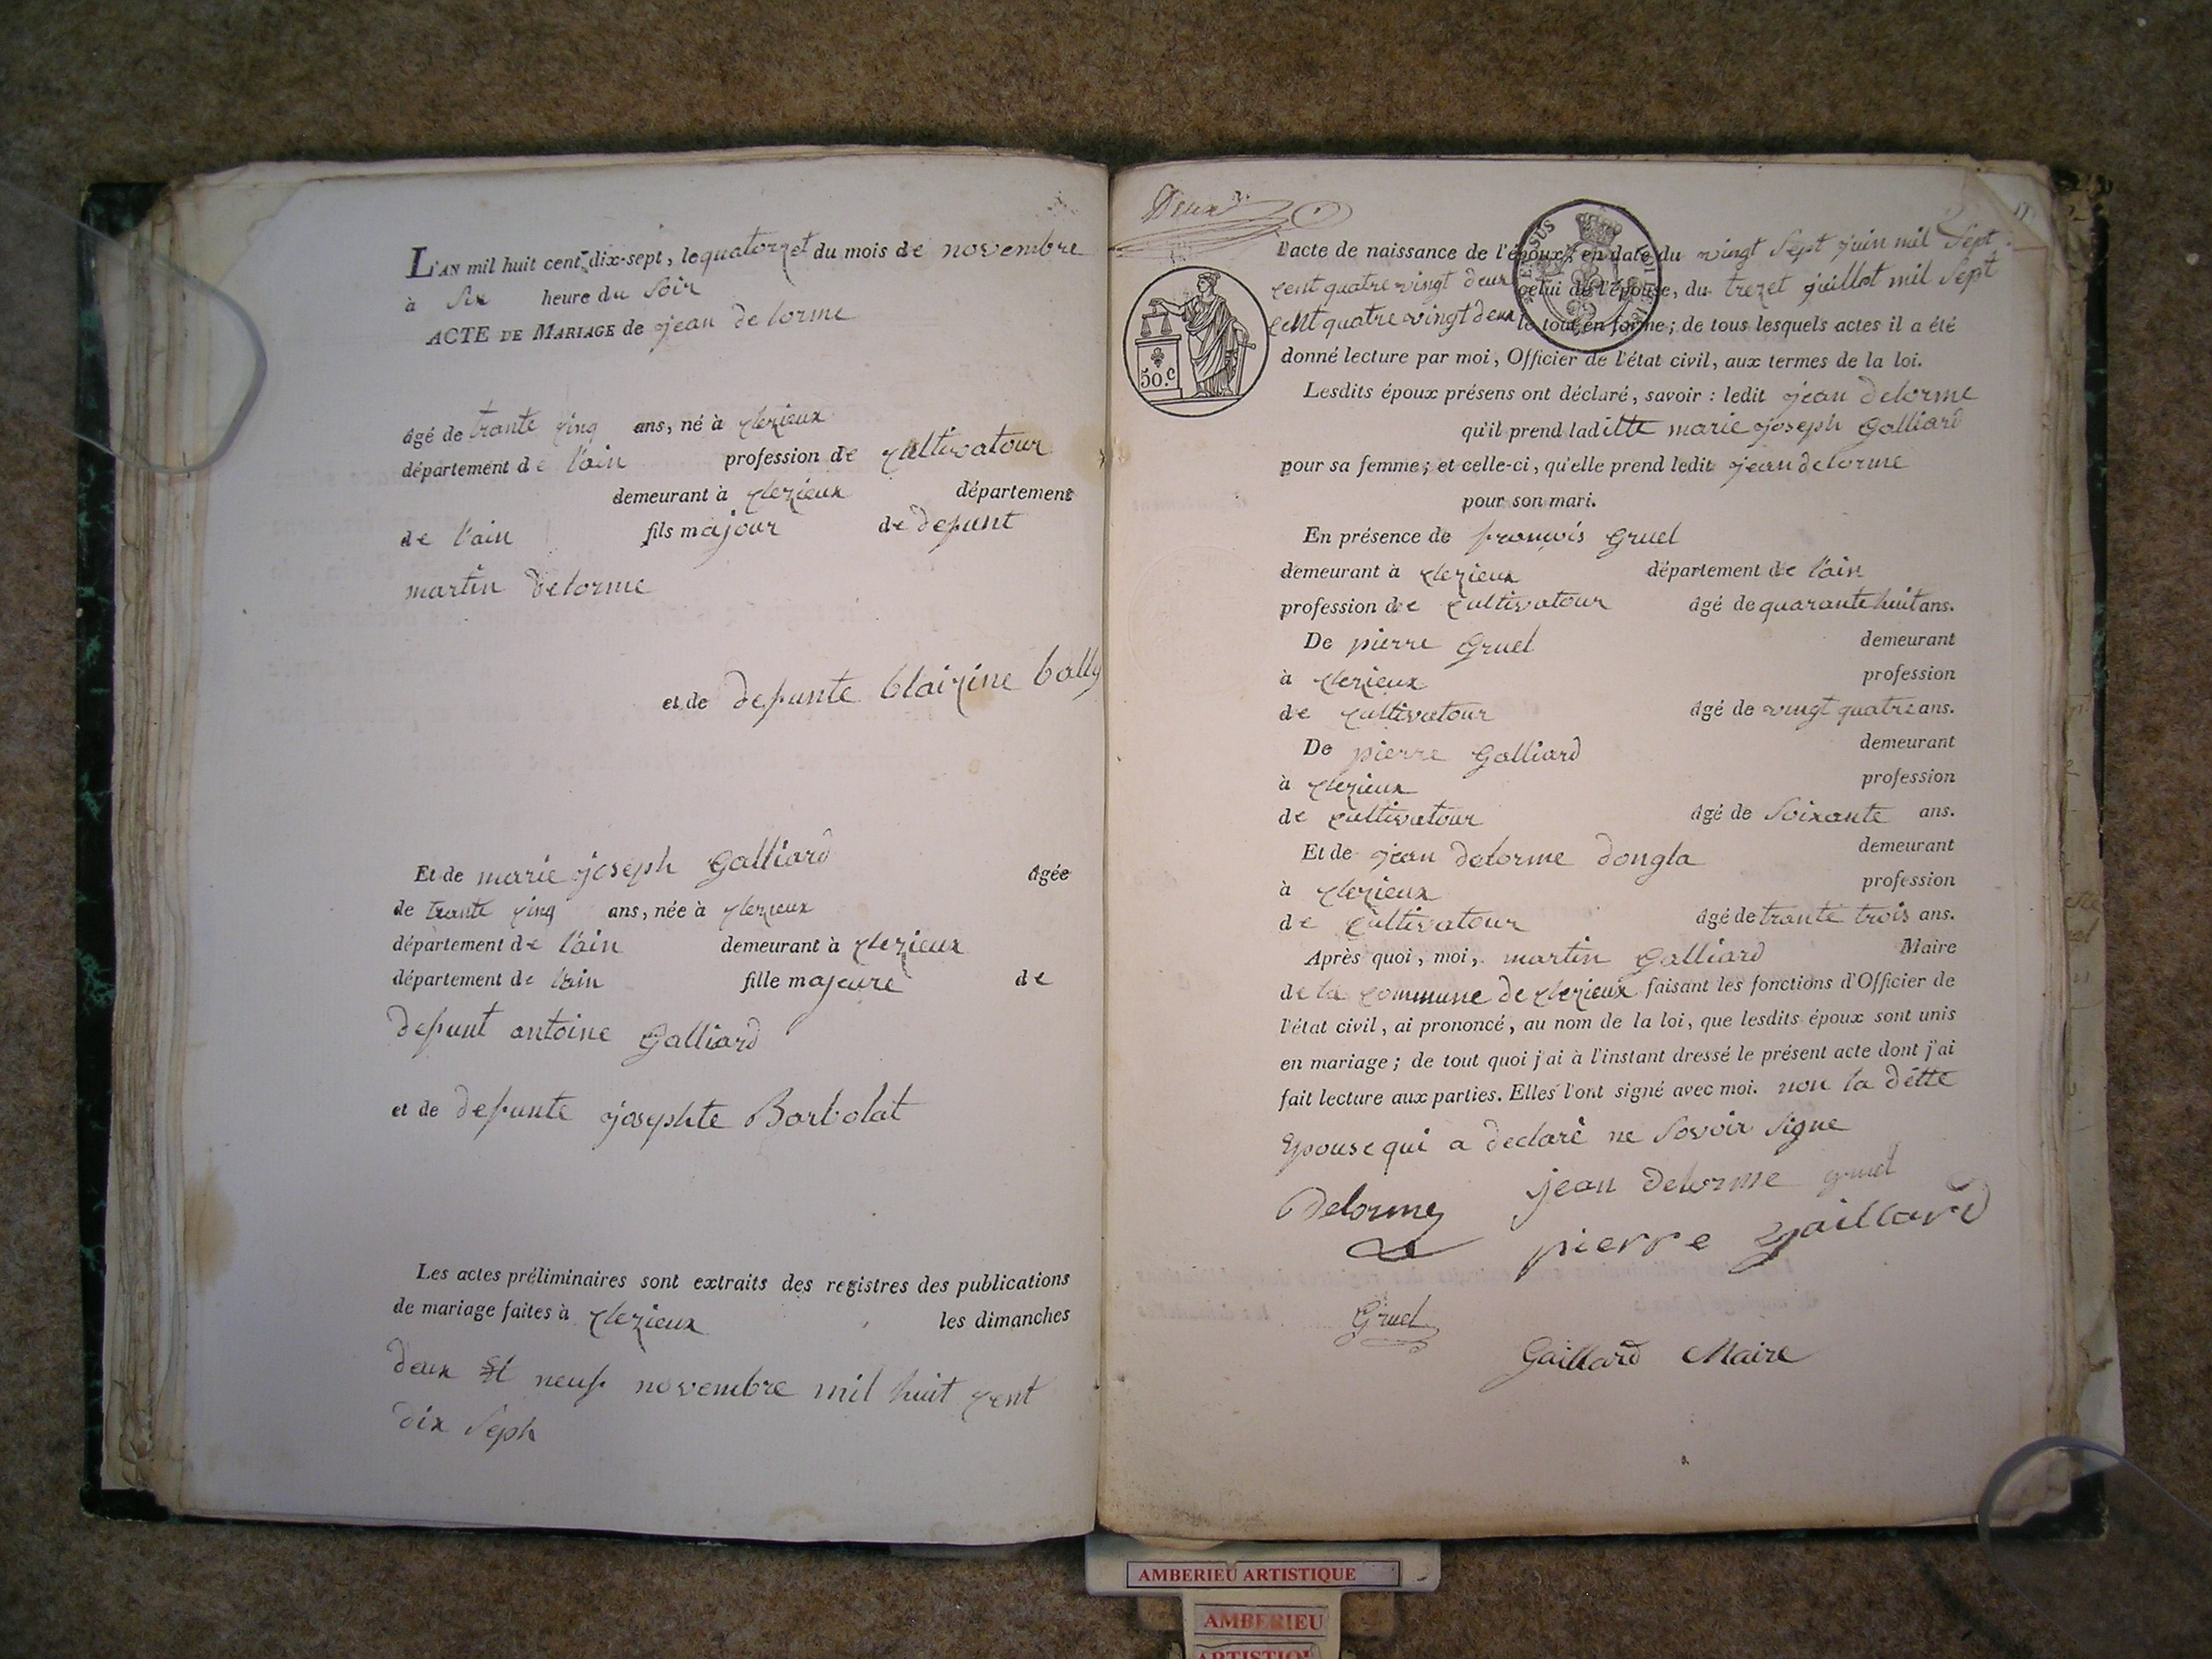 L'AN mil huit cent dix-sept, le quatorzet du mois de novembre
à Six heure du Soir
ACTE DE MARIAGE de jean delorme
âgé de trante cinq ans, né à clezieux
département de l'ain profession de cultivatour
demeurant à clezieux département
de l'ain fils majour de defunt
martin delorme
et de defunte Claizine bally
Et de marie joseph Galliard âgée
de trante cinq ans, née à clezieux
département de l'ain demeurant à clezieux
département de l'ain fille majeure de
defunt antoine Galliard
et de defunte josephte Borbolat
Les actes préliminaires sont extraits des registres des publications
de mariage faites à clezieux les dimanches
deux et neuf novembre mil huit cent
dix Seph
Deux
l'acte de naissance de l'époux, en date du vingt Sept juin mil Sept
cent quatre vingt deux celui de l'épouse, du trezet juillot mil Sept
cent quatre vingt deux le tout en forme; de tous lesquels actes il a été
donné lecture par moi, Officier de l'état civil, aux termes de la loi.
50.c
Lesdits époux présens ont déclaré, savoir : ledit jean delorme
qu'il prend laditte marie joseph Galliard
pour sa femme; et celle-ci, qu'elle prend ledit jean delorme
pour son mari.
En présence de françois Gruel
demeurant à clezieux département de l'ain
profession de cultivatour âgé de quarante huit ans.
De pierre Gruel demeurant
à clezieux profession
de cultivatour âgé de vingt quatre ans.
De pierre Galliard demeurant
à clezieux profession
de cultivatour âgé de Soixante ans.
Et de jean delorme dongla demeurant
à clezieux profession
de cultivatour âgé de trante trois ans.
Après quoi, moi, martin Galliard Maire
de la commune de clezieux faisant les fonctions d'Officier de
l'état civil, ai prononcé, au nom de la loi, que lesdits époux sont unis
en mariage; de tout quoi j'ai à l'instant dressé le présent acte dont j'ai
fait lecture aux parties. Elles l'ont signé avec moi. non la détte
Epouse qui a declaré ne Sovoir Signe
Delorme jean delorme gruel
pierre gaillard
Gruel
Gaillard Maire
AMBERIEU ARTISTIQUE
AMBERIEU
ARTISTIQUE